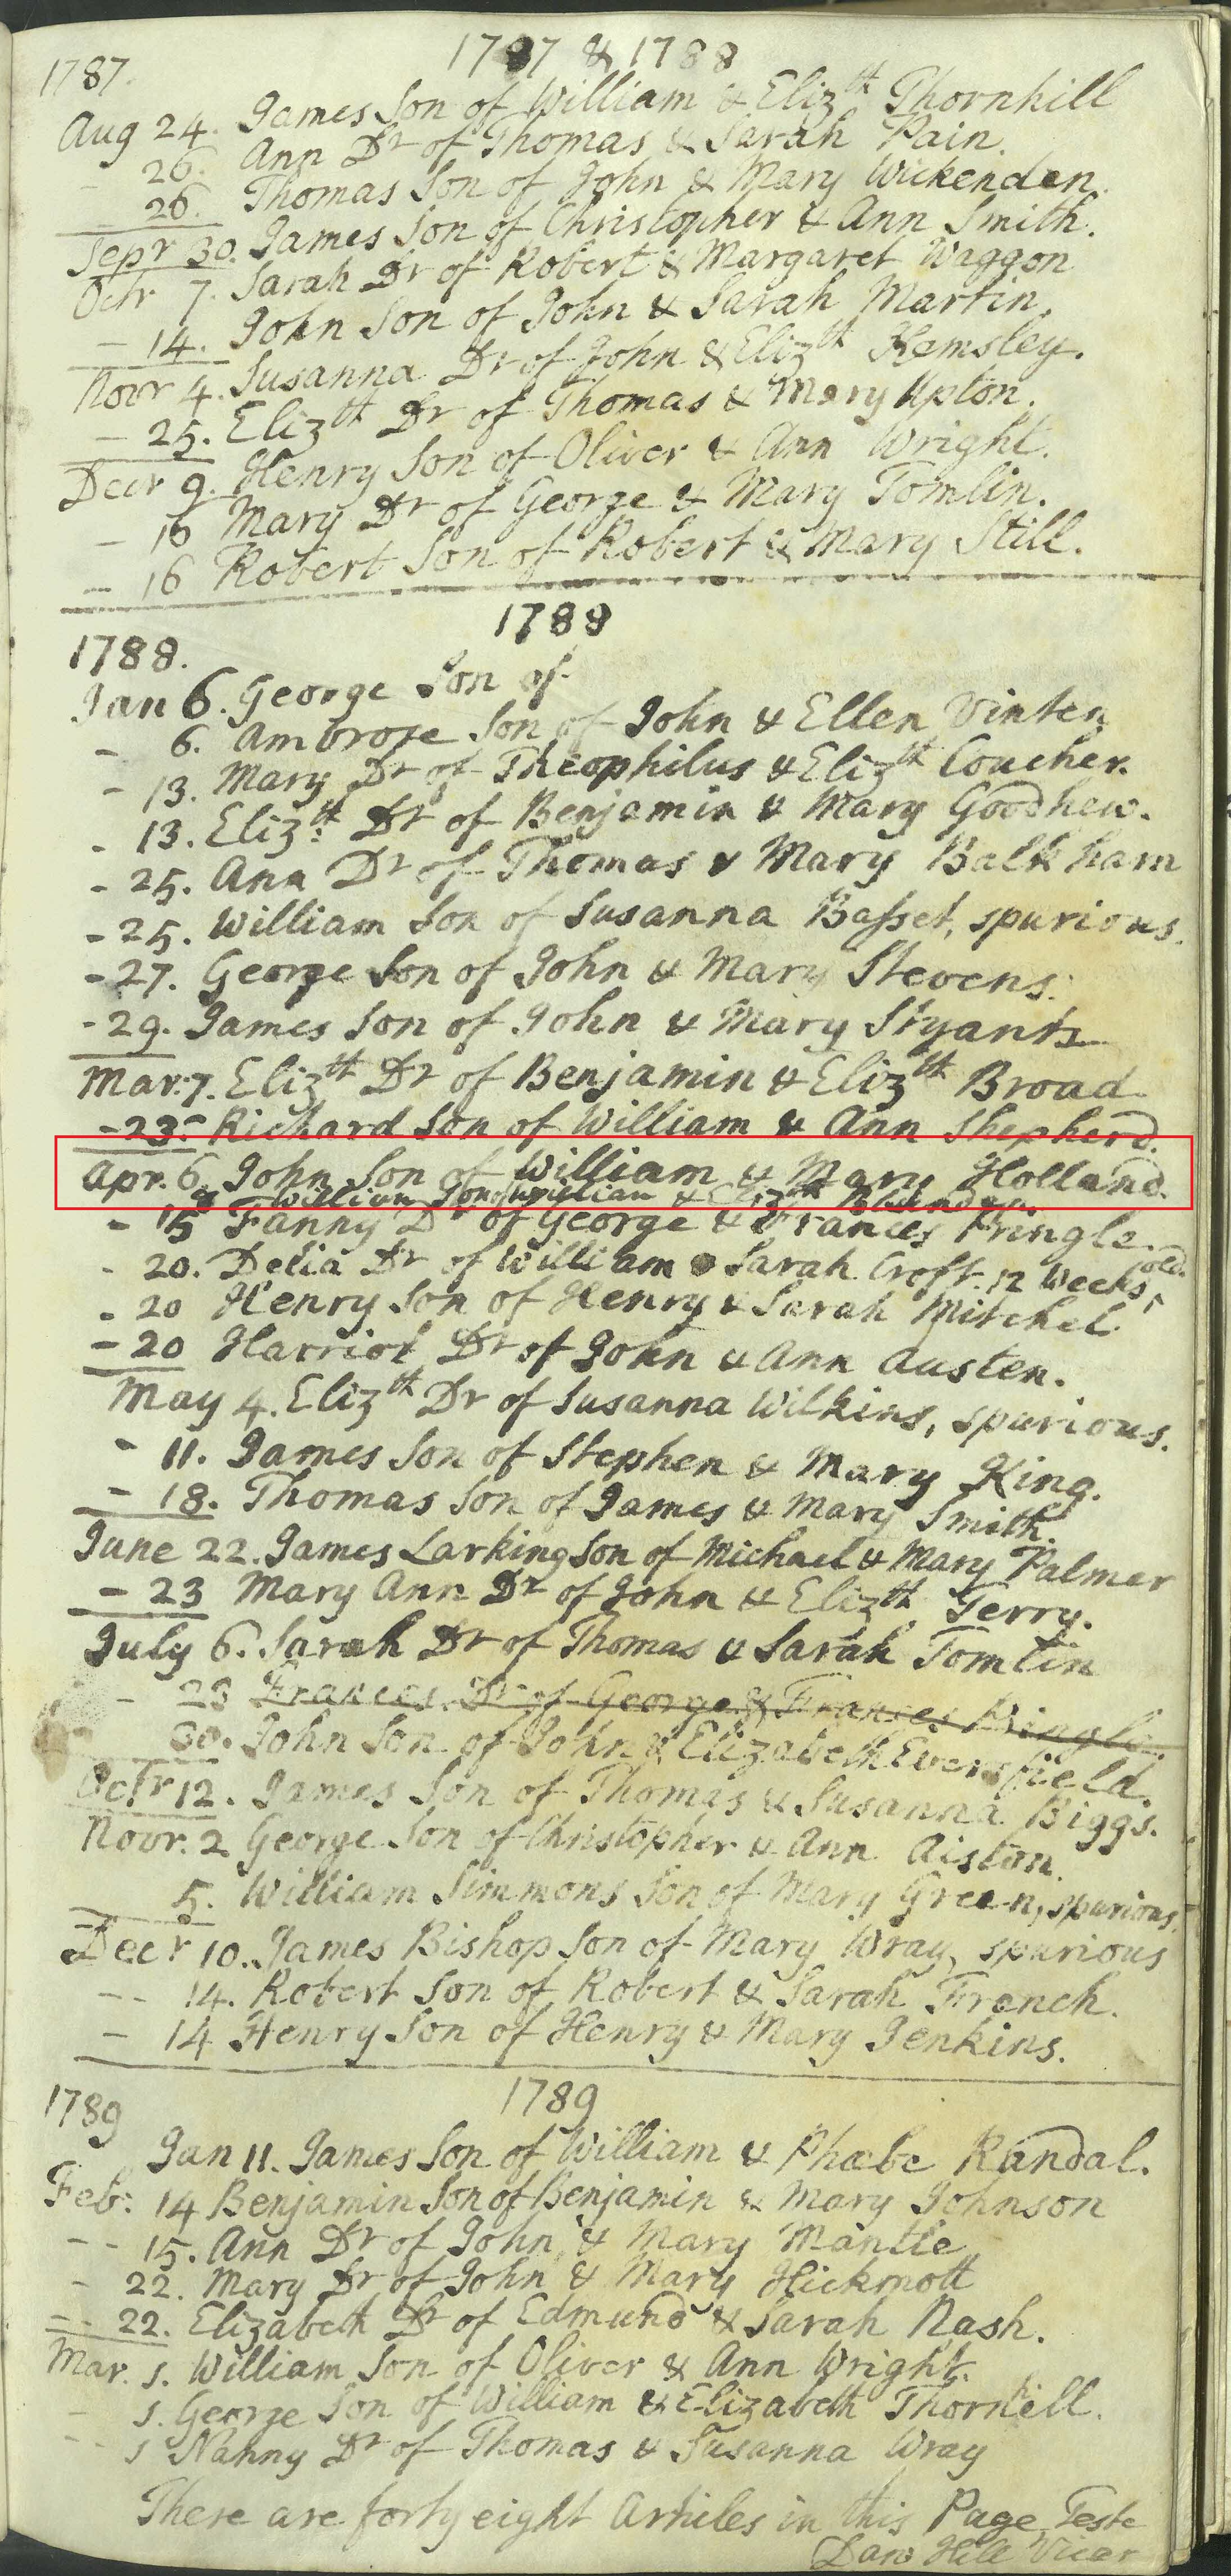 1787 & 1788
1787.
Aug 24. James Son of William & Elizth Thornhill
- 26. Ann Dr of Thomas & Sarah Pain.
26. Thomas Son of John & Mary Wickenden.
Sepr 30. James Son of Christopher & Ann Smith.
Octr 7. Sarah Dr of Robert & Margaret Waggon
- 14. John Son of John & Sarah Martin.
Novr 4. Susanna Dr of John & Elizth Hemsley.
- 25. Elizth Dr of Thomas & Mary Upton.
Decr 9. Henry Son of Oliver & Ann Wright.
- 16 Mary Dr of George & Mary Tomlin.
- 16 Robert Son of Robert & Mary Still.
1788
1788.
Jan 6. George Son of
- 6. Ambrose Son of John & Ellen Vinten
- 13. Mary Dr of Theophilus & Elizth Coucher.
- 13. Elizth Dr of Benjamin & Mary Goodhew.
- 25. Ann Dr of Thomas & Mary Balkham
- 25. William Son of Susanna Basset, spurious.
- 27. George Son of John & Mary Stevens.
- 29. James Son of John & Mary Styants
Mar: 7. Elizth Dr of Benjamin & Elizth Broad
- 23. Richard Son of William & Ann Shepherd.
Apr. 6. John Son of William & Mary Holland.
William Son of William & Elizth
- 15 Fanny Dr of George & Frances Pringle.
- 20. Delia Dr of William & Sarah Croft. 12 Weeks old.
- 20 Henry Son of Henry & Sarah Mitchel.
- 20 Harriot Dr of John & Ann Austen.
May 4. Elizth Dr of Susanna Wilkins, spurious.
- 11. James Son of Stephen & Mary King.
- 18. Thomas Son of James & Mary Smith.
June 22. James Larking Son of Michael & Mary Palmer
- 23 Mary Ann Dr of John & Elizth Terry.
July 6. Sarah Dr of Thomas & Sarah Tomlin
- 23 Frances Dr of George & Frances Pringle.
30. John Son of John & Elizabeth Eversfield.
Octr 12. James Son of Thomas & Susanna Biggs.
Novr. 2 George Son of Christopher & Ann Aiston.
5. William Simmons Son of Mary Green, spurious.
Decr 10. James Bishop Son of Mary Wray, spurious
- - 14. Robert Son of Robert & Sarah French.
- 14 Henry Son of Henry & Mary Jenkins.
1789
1789
Jan 11. James Son of William & Phœbe Randal.
Feb: 14 Benjamin Son of Benjamin & Mary Johnson
- - 15. Ann Dr of John & Mary Mantle
- 22. Mary Dr of John & Mary Hickmott
- - 22. Elizabeth Dr of Edmund & Sarah Nash.
Mar. 1. William Son of Oliver & Ann Wright.
- 1. George Son of William & Elizabeth Thornell.
- - 1 Nanny Dr of Thomas & Susanna Wray
There are forty eight Articles in this Page Teste
Dan Hill Vicar